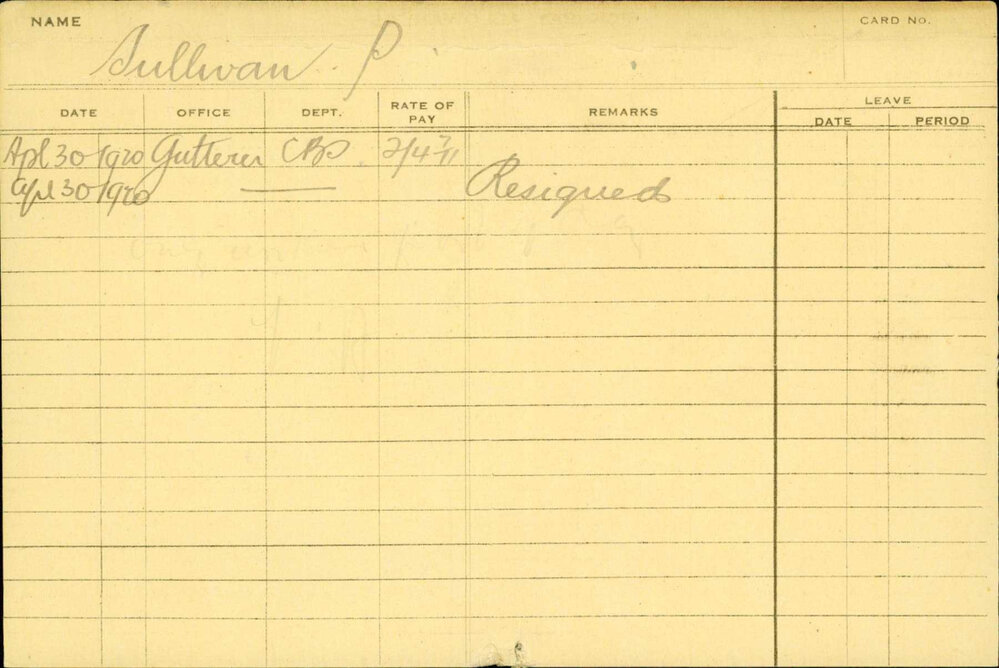 NAME
CARD No.
Sullivan. P
DATE OFFICE DEPT. RATE OF PAY REMARKS LEAVE
DATE PERIOD
Apl 30 1920 Gutterer CBS. 2/4
Apl 30 1920 — Resigned